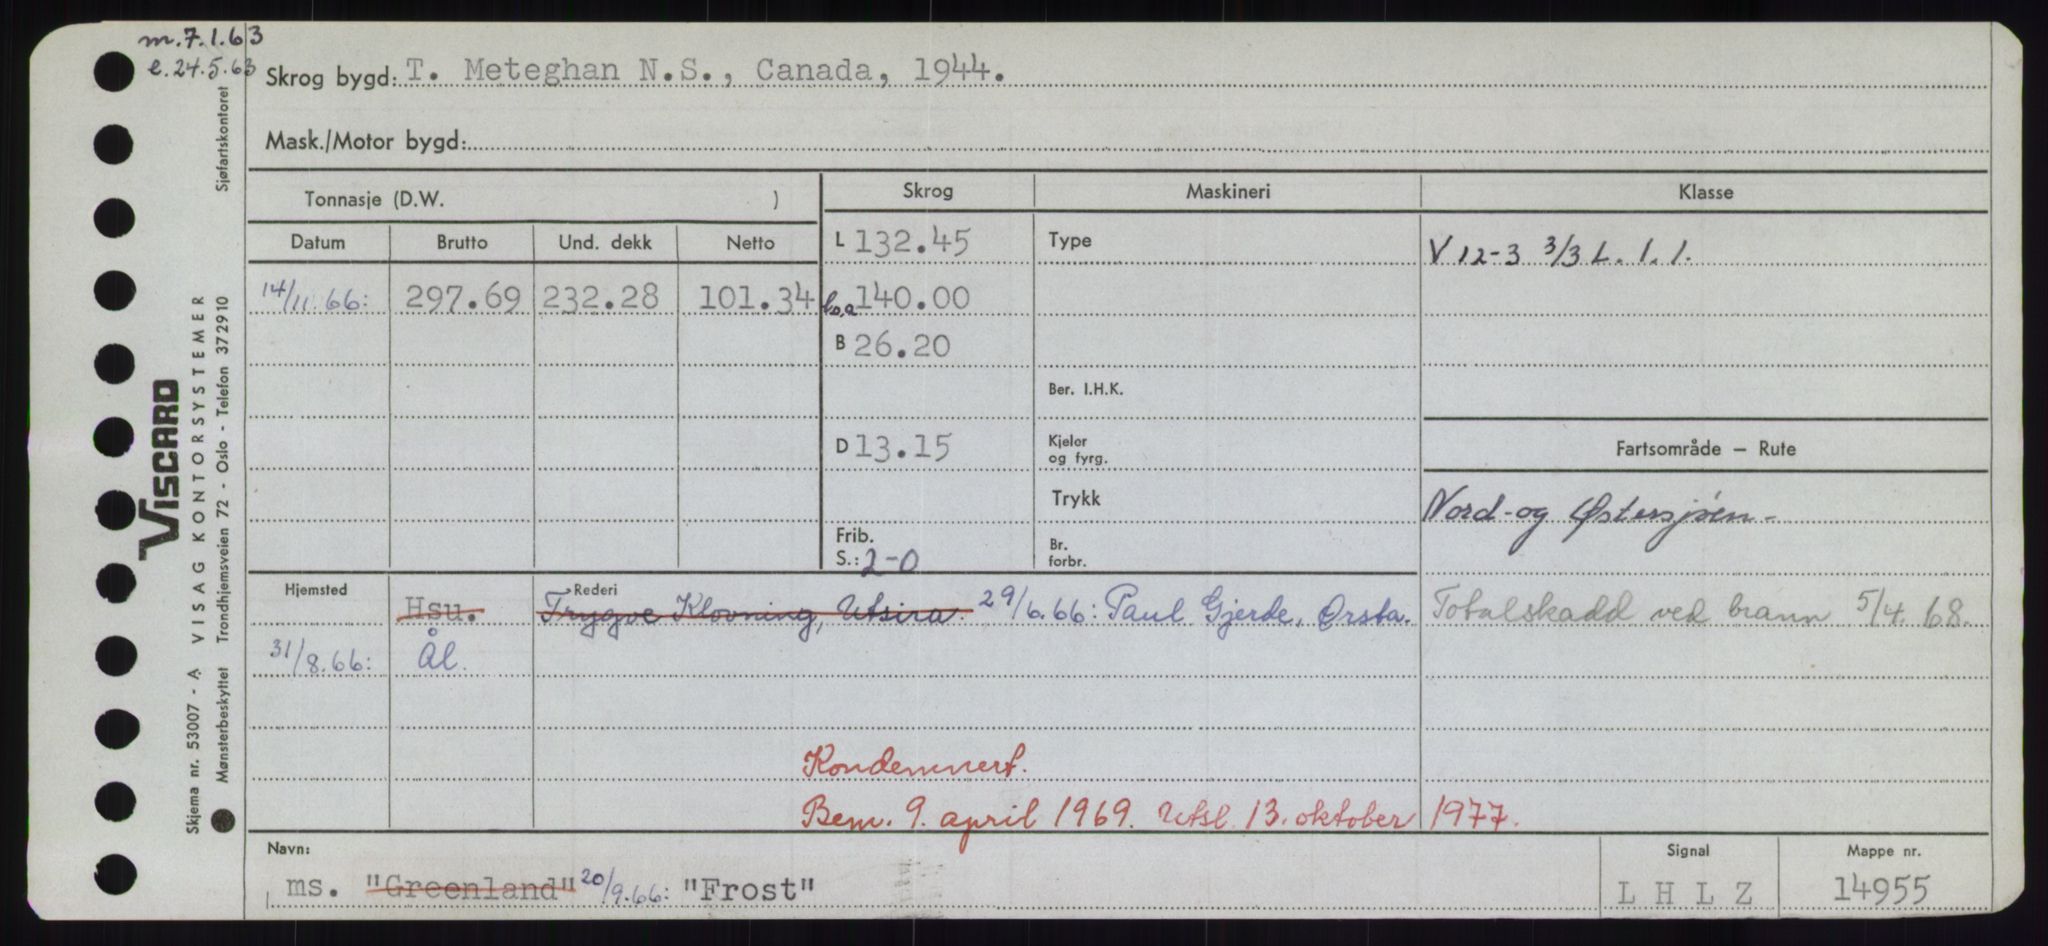 m. 7.1.63
e. 24.5.63
Skrog bygd: T. Meteghan N.S., Canada, 1944.
Mask./Motor bygd:
Tonnasje (D.W. )
Skrog
Maskineri
Klasse
Datum
Brutto
Und. dekk
Netto
L 132.45
Type
V 12-3 3/3 L. 1. 1.
14/11.66:
297.69
232.28
101.34
l.o.a 140.00
B 26.20
Ber. I.H.K.
D 13.15
Kjeler
og fyrg.
Fartsområde – Rute
Trykk
Nord- og Østersjøen -
Frib.
S.: 2-0
Br.
forbr.
Hjemsted
Rederi
Hsu.
Trygve Klovning, Utsira. 29/6.66: Paul Gjerde, Ørsta.
Totalskadd ved brann 5/4. 68.
31/8.66:
Ål.
Kondemnert.
Bem. 9. april 1969. Utsl. 13. oktober 1977.
Navn:
ms. "Greenland" 20/9.66: "Frost"
Signal
L H L Z
Mappe nr.
14955
VISCARD
Skjema nr. 53007 - A VISAG KONTORSYSTEMER
Mønsterbeskyttet Trondhjemsveien 72 - Oslo - Telefon 372910 Sjøfartskontoret